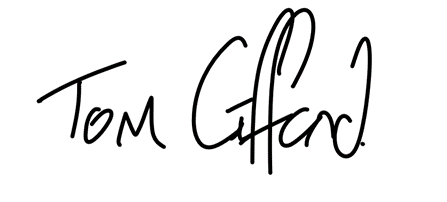 Tom Giffard.